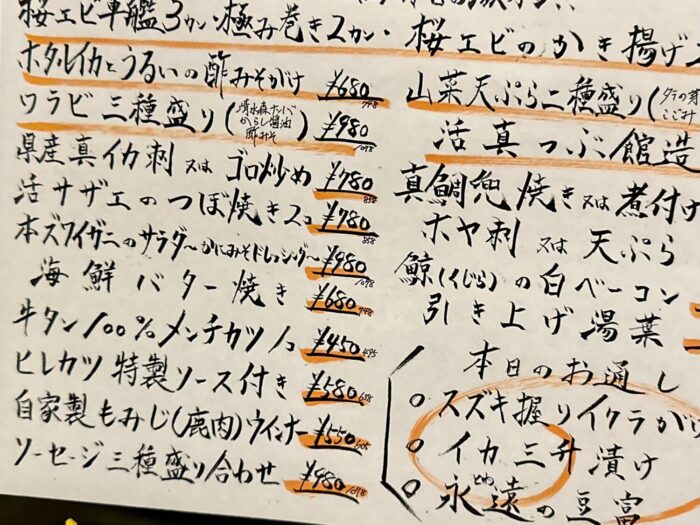 桜エビ軍艦3カン・極み巻き2カン・
ホタルイカとうるいの酢みそがけ ¥680 748
ワラビ三種盛り(清水森ナンバ からし醤油 酢みそ) ¥980 1078
県産真イカ刺 又は ゴロ炒め ¥780 858
活サザエのつぼ焼き2コ ¥780 858
本ズワイガニのサラダ〜かにみそドレッシング〜 ¥980 1078
海鮮バター焼き ¥680 748
牛タン100%メンチカツ1コ ¥450 495
ヒレカツ特製ソース付き ¥580 638
自家製もみじ(鹿肉)ウインナー ¥550 605
ソーセージ三種盛り合わせ ¥980 1078
桜エビのかき揚げ
山菜天ぷら二種盛り(タラの芽 こごみ
活真つぶ館造
真鯛兜焼き又は煮付け
ホヤ刺 又は 天ぷら
鯨(くじら)の白ベーコン
引き上げ湯葉
本日のお通し
○スズキ握りイクラが
○イカ三升漬け
○永遠の豆富
とわ